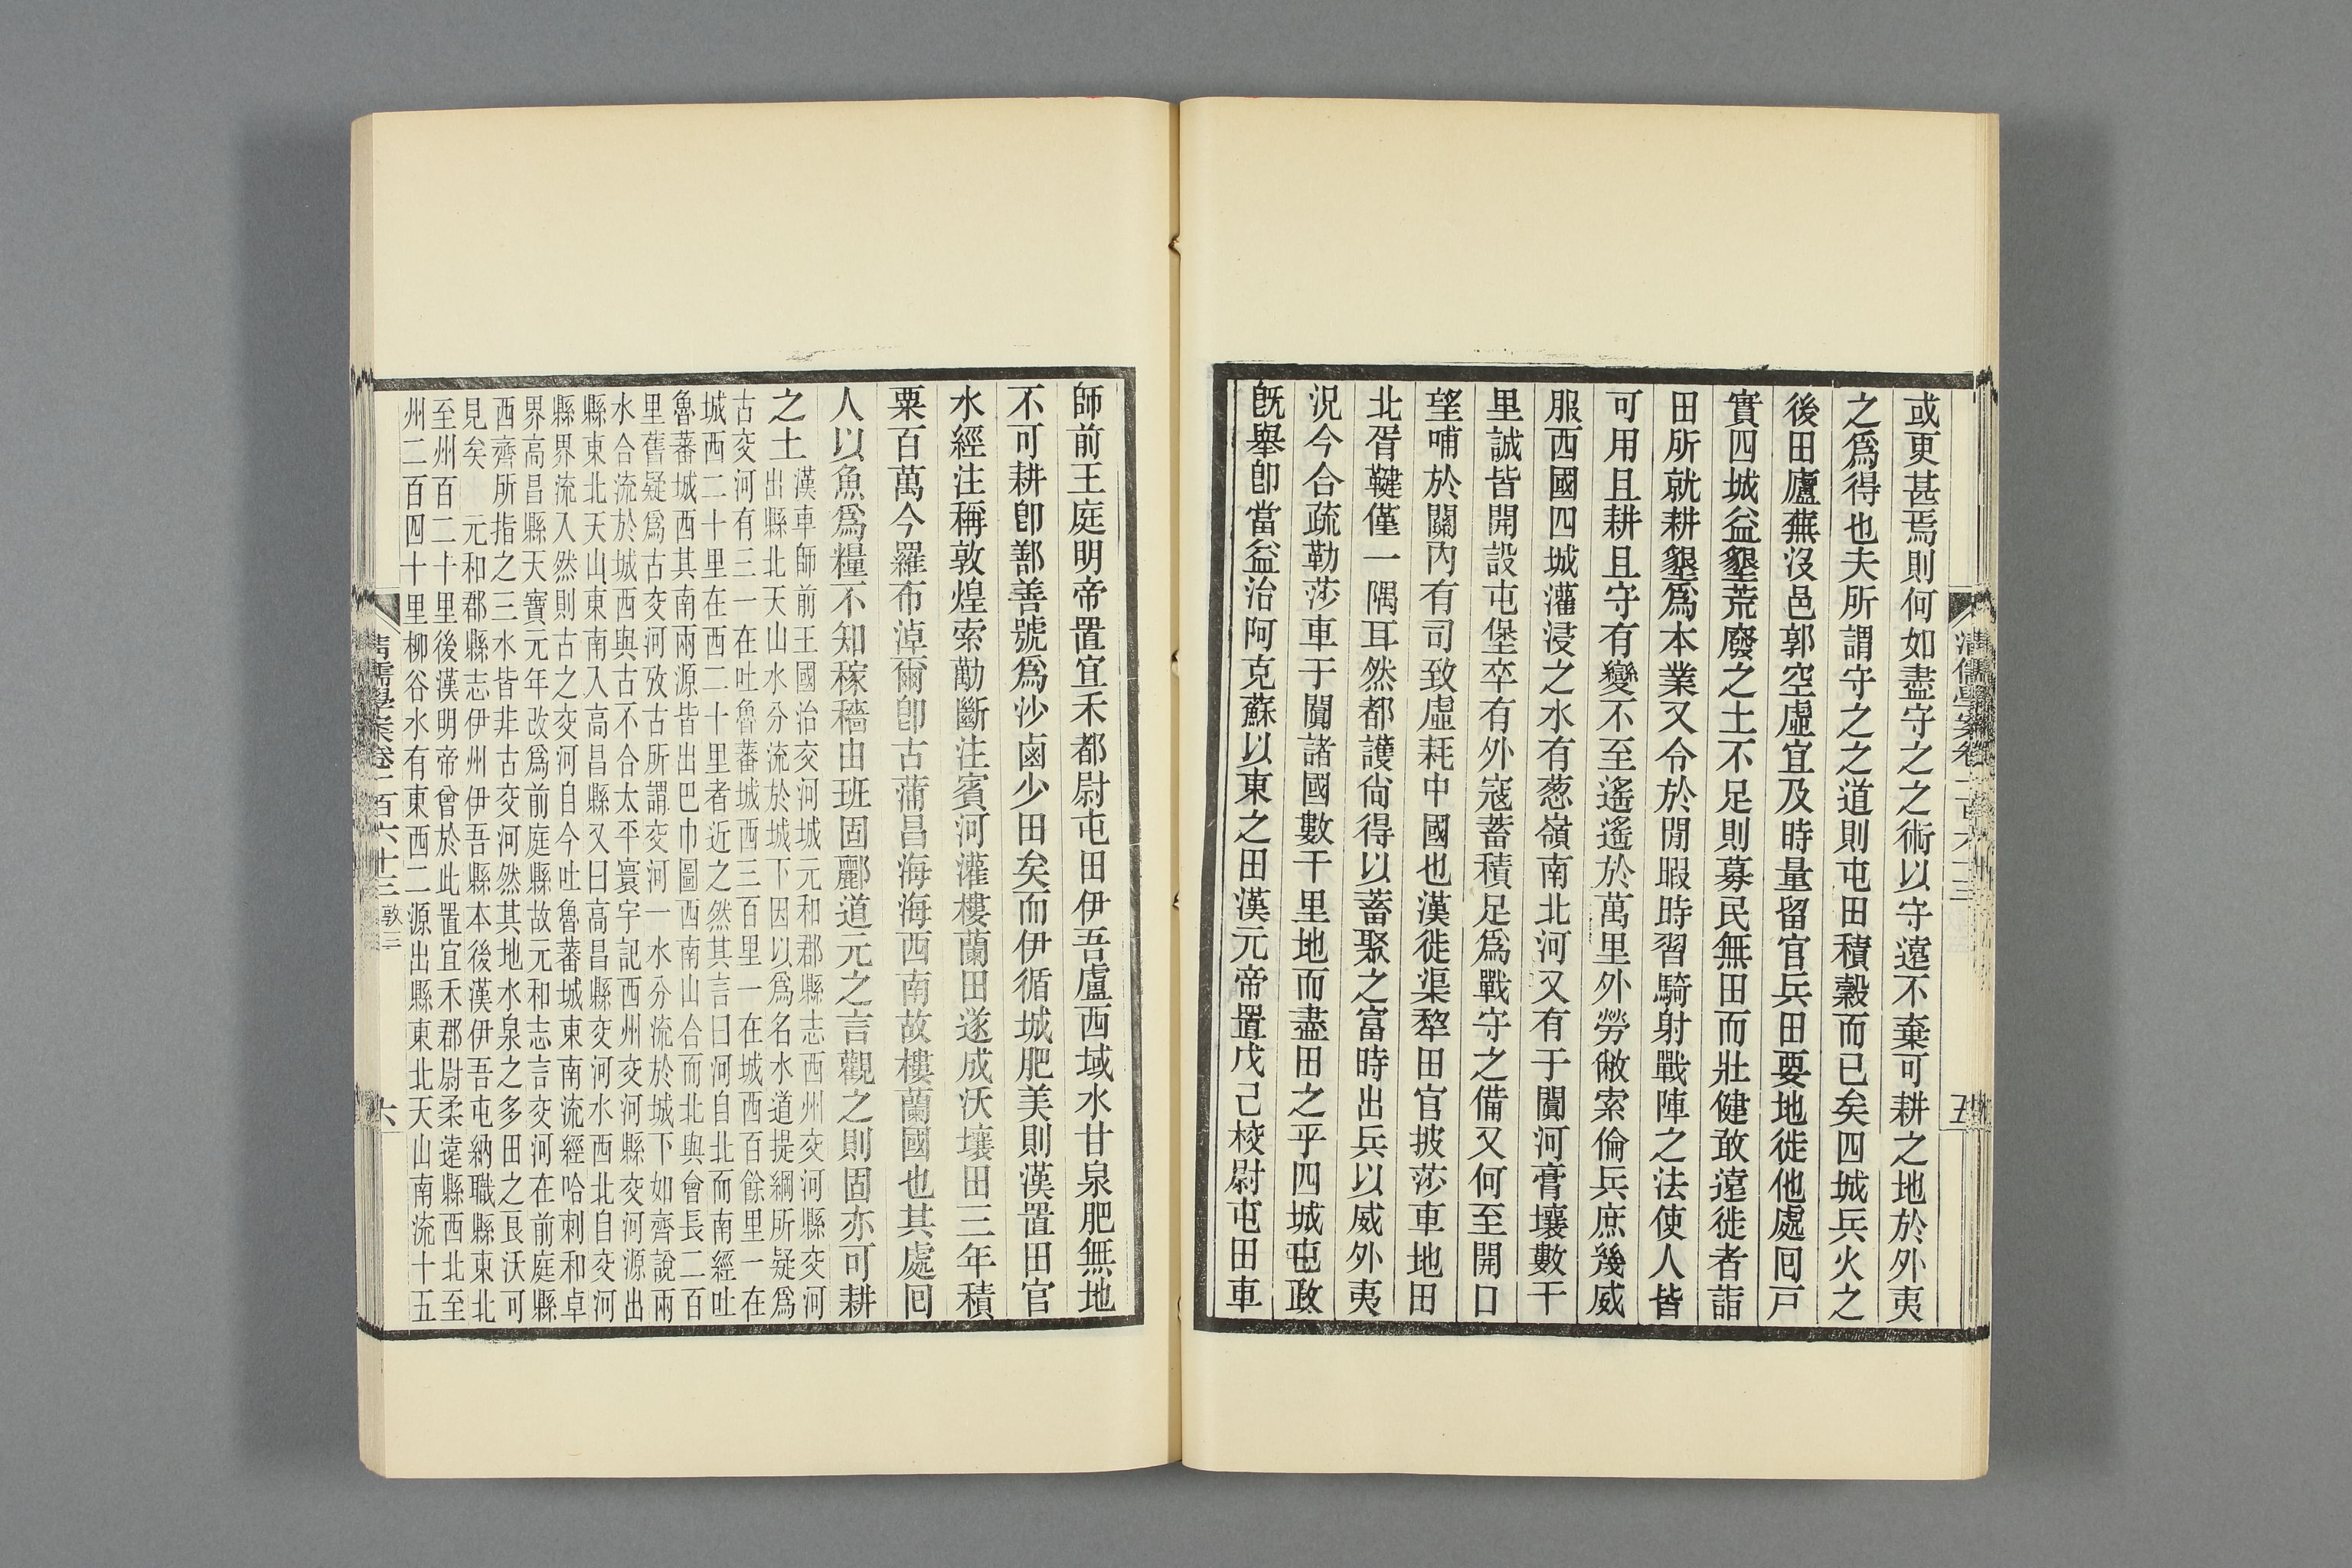 或更甚焉則何如盡守之之術以守遠不棄可耕之地於外夷
之爲得也夫所謂守之之道則屯田積糓而已矣四城兵火之
後田廬蕪沒邑郭空虛宜及時量留官兵田要地徙他處囘戸
實四城益墾荒廢之土不足則募民無田而壯健敢遠徙者詣
田所就耕墾爲本業又令於閒暇時習騎射戰陣之法使人皆
可用且耕且守有變不至遙遙於萬里外勞敝索倫兵庶幾威
服西國四城灌浸之水有葱嶺南北河又有于闐河膏壤數千
里誠皆開設屯堡卒有外寇蓄積足爲戰守之備又何至開口
望哺於關內有司致虛耗中國也漢徙渠犂田官披莎車地田
北胥鞬僅一隅耳然都護尙得以蓄聚之富時出兵以威外夷
況今合疏勒莎車于闐諸國數千里地而盡田之乎四城屯政
旣舉卽當益治阿克蘇以東之田漢元帝置戊己校尉屯田車
清儒學案卷一百六十三
五
師前王庭明帝置宜禾都尉屯田伊吾盧西域水甘泉肥無地
不可耕卽鄯善號爲沙鹵少田矣而伊循城肥美則漢置田官
水經注稱敦煌索勱斷注賓河灌樓蘭田遂成沃壤田三年積
粟百萬今羅布淖爾卽古蒲昌海海西南故樓蘭國也其處囘
人以魚爲糧不知稼穡由班固酈道元之言觀之則固亦可耕
之土
漢車師前王國治交河城元和郡縣志西州交河縣交河
出縣北天山水分流於城下因以爲名水道提綱所疑爲
古交河有三一在吐魯蕃城西三百里一在城西百餘里一在
城西二十里在西二十里者近之然其言曰河自北而南經吐
魯蕃城西其南兩源皆出巴巾圖西南山合而北與會長二百
里舊疑爲古交河攷古所謂交河一水分流於城下如齊說兩
水合流於城西與古不合太平寰宇記西州交河縣交河源出
縣東北天山東南入高昌縣又曰高昌縣交河水西北自交河
縣界流入然則古之交河自今吐魯蕃城東南流經哈刺和卓
界高昌縣天寶元年改爲前庭縣故元和志言交河在前庭縣
西齊所指之三水皆非古交河然其地水泉之多田之艮沃可
見矣　元和郡縣志伊州伊吾縣本後漢伊吾屯納職縣東北
至州百二十里後漢明帝曾於此置宜禾郡尉柔遠縣西北至
州二百四十里柳谷水有東西二源出縣東北天山南流十五
清儒學案卷一百六十三
六